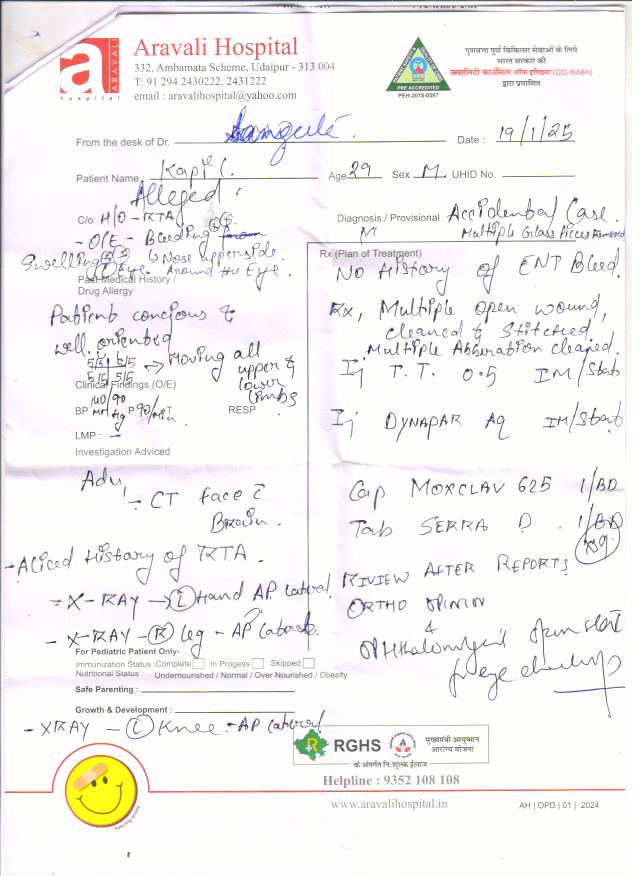 Aravali Hospital
332, Ambamata Scheme, Udaipur - 313 004
T: 91 294 2430222, 2431222
email : aravalihospital@yahoo.com
a ARAVALI
hospital
PRE ACCREDITED
PEH-2018-0587
गुणवत्ता पूर्ण चिकित्सा सेवाओं के लिये
भारत सरकार की
क्वालिटी काउंसिल ऑफ इण्डिया (QCI-NABH)
द्वारा प्रमाणित
From the desk of Dr.
Date : 19/1/25
Patient Name : Kapil C.
Age 29 Sex M UHID No.
Alleged
C/o H/O - RTA
- O/E - Bleeding
Swelling Nose upperside.
Eye. Around the Eye.
Past Medical History /
Drug Allergy
Patient concious &
well oriented
5/5 5/5
5/5 5/5 → Moving all
upper &
lower
limbs
Clinical Findings (O/E)
110/90
BP MM Hg P 90/Min T RESP
LMP : -
Investigation Adviced
Adv
- CT face c̄
Brain.
- Aliced History of RTA.
- X-RAY → (L) Hand AP lateral
- X-RAY - (R) leg - AP laterale
For Pediatric Patient Only-
Immunization Status : Complete In Progess Skipped
Nutritional Status : Undernourished / Normal / Over Nourished / Obesity
Safe Parenting :
Growth & Development :
- XRAY - (L) Knee - AP lateral
Diagnosis / Provisional Accidental Case.
Multiple Glass Pieces Removed
Rx (Plan of Treatment)
No History of ENT Bleed.
Rx, Multiple open wound,
cleaned & Stitched
Multiple Abberation cleaned.
Inj T.T. 0.5 IM/Stat
Inj DYNAPAR AQ IM/Stat
Cap MOXCLAV 625 1/BD
Tab SERRA D. 1/BD
RIVIEW AFTER REPORTS
ORTHO OPINION
&
for eye checkup
RGHS
मुख्यमंत्री आयुष्मान
आरोग्य योजना
के अंतर्गत नि:शुल्क ईलाज
Helpline : 9352 108 108
www.aravalihospital.in
AH | OPD | 01 | 2024